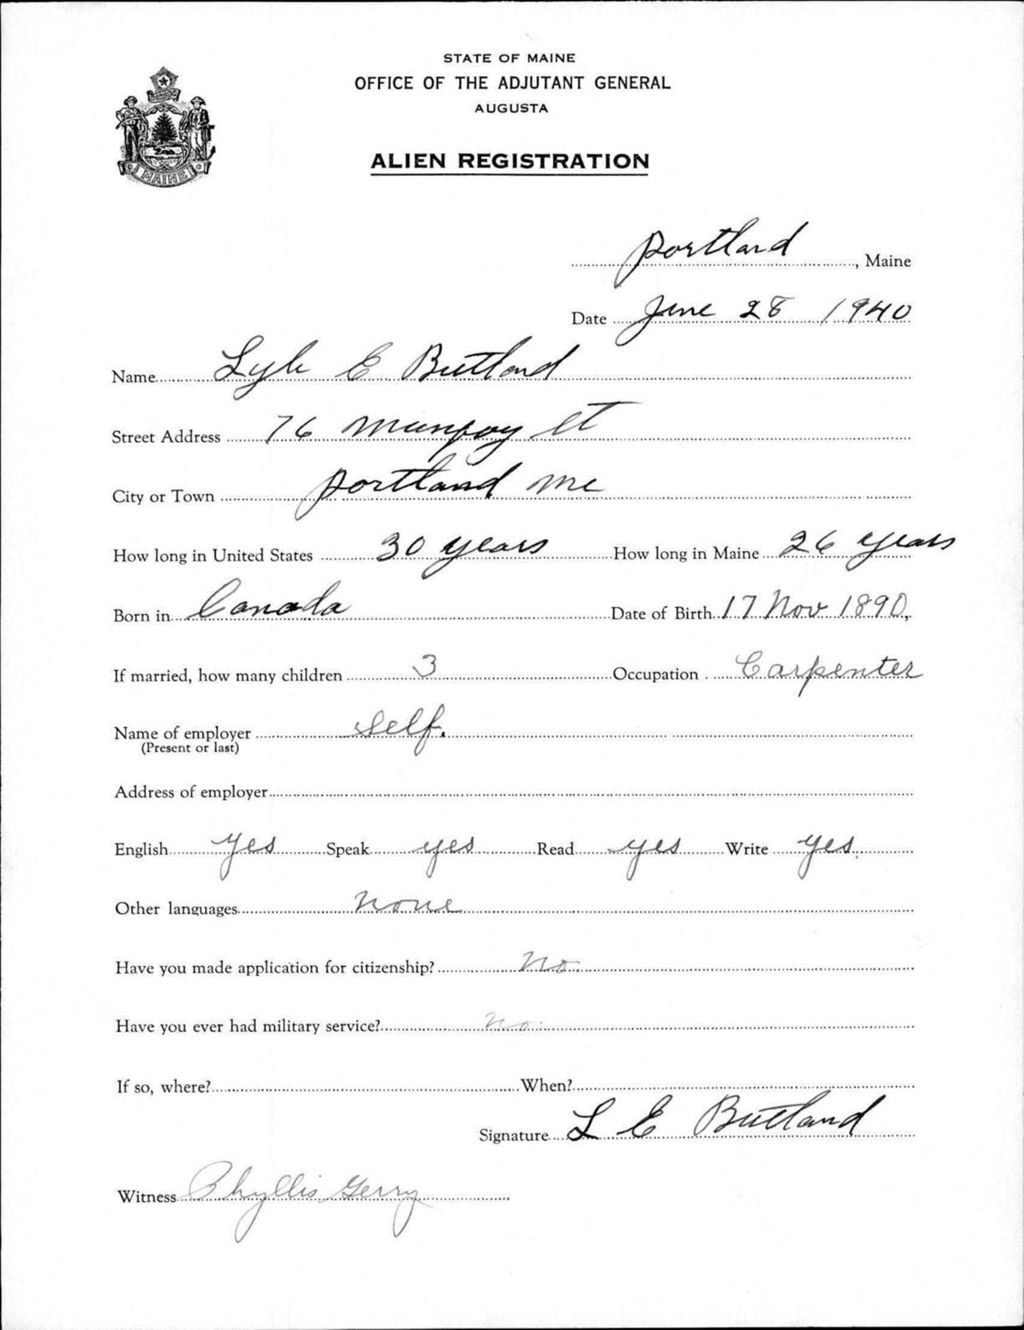 STATE OF MAINE
OFFICE OF THE ADJUTANT GENERAL
AUGUSTA
ALIEN REGISTRATION
MAINE
Portland, Maine
Date June 28 1940
Name Lyle E Butland
Street Address 76 Munjoy St
City or Town Portland Me
How long in United States 30 years How long in Maine 26 years
Born in Canada Date of Birth 17 Nov 1890,
If married, how many children 3 Occupation Carpenter
Name of employer Self.
(Present or last)
Address of employer
English Yes Speak yes Read yes Write Yes.
Other languages None
Have you made application for citizenship? No.
Have you ever had military service? No.
If so, where? When?
Signature L E Butland
Witness Phyllis Gerry